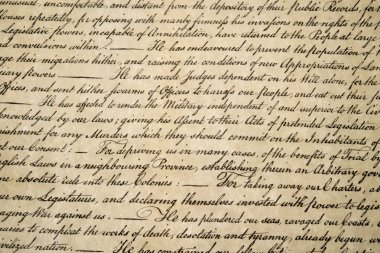 unusual, uncomfortable, and distant from the depository of their Public Records, for
Houses repeatedly, for opposing with manly firmness his invasions on the rights of the
Legislative powers, incapable of Annihilation, have returned to the People at large
and convulsions within. — He has endeavoured to prevent the population of
rage their migrations hither, and raising the conditions of new Appropriations of Lan
iary powers. — He has made Judges dependent on his Will alone, for the
Offices, and sent hither swarms of Officers to harrass our people, and eat out their
— He has affected to render the Military independent of and superior to the Civ
knowledged by our laws; giving his Assent to their Acts of pretended Legislation
nishment for any Murders which they should commit on the Inhabitants of
ut our Consent: — For depriving us in many cases, of the benefits of Trial by
nglish Laws in a neighbouring Province, establishing therein an Arbitrary gove
me absolute rule into these Colonies: — For taking away our Charters, a
our own Legislatures, and declaring themselves invested with power to legis
aging War against us. — He has plundered our seas, ravaged our Coasts,
naries to compleat the works of death, desolation and tyranny, already begun
ivilized nation. — He has constrained our